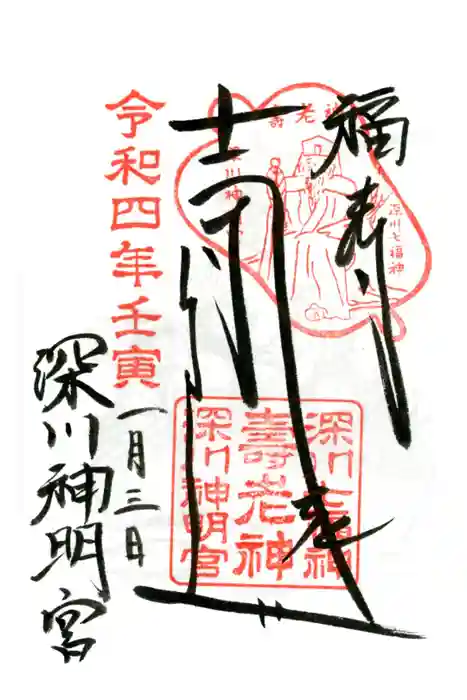 福寿
壽老神
深川七福神
深川七福神
壽老神
深川神明宮
令和四年壬寅
一月三日
深川神明宮